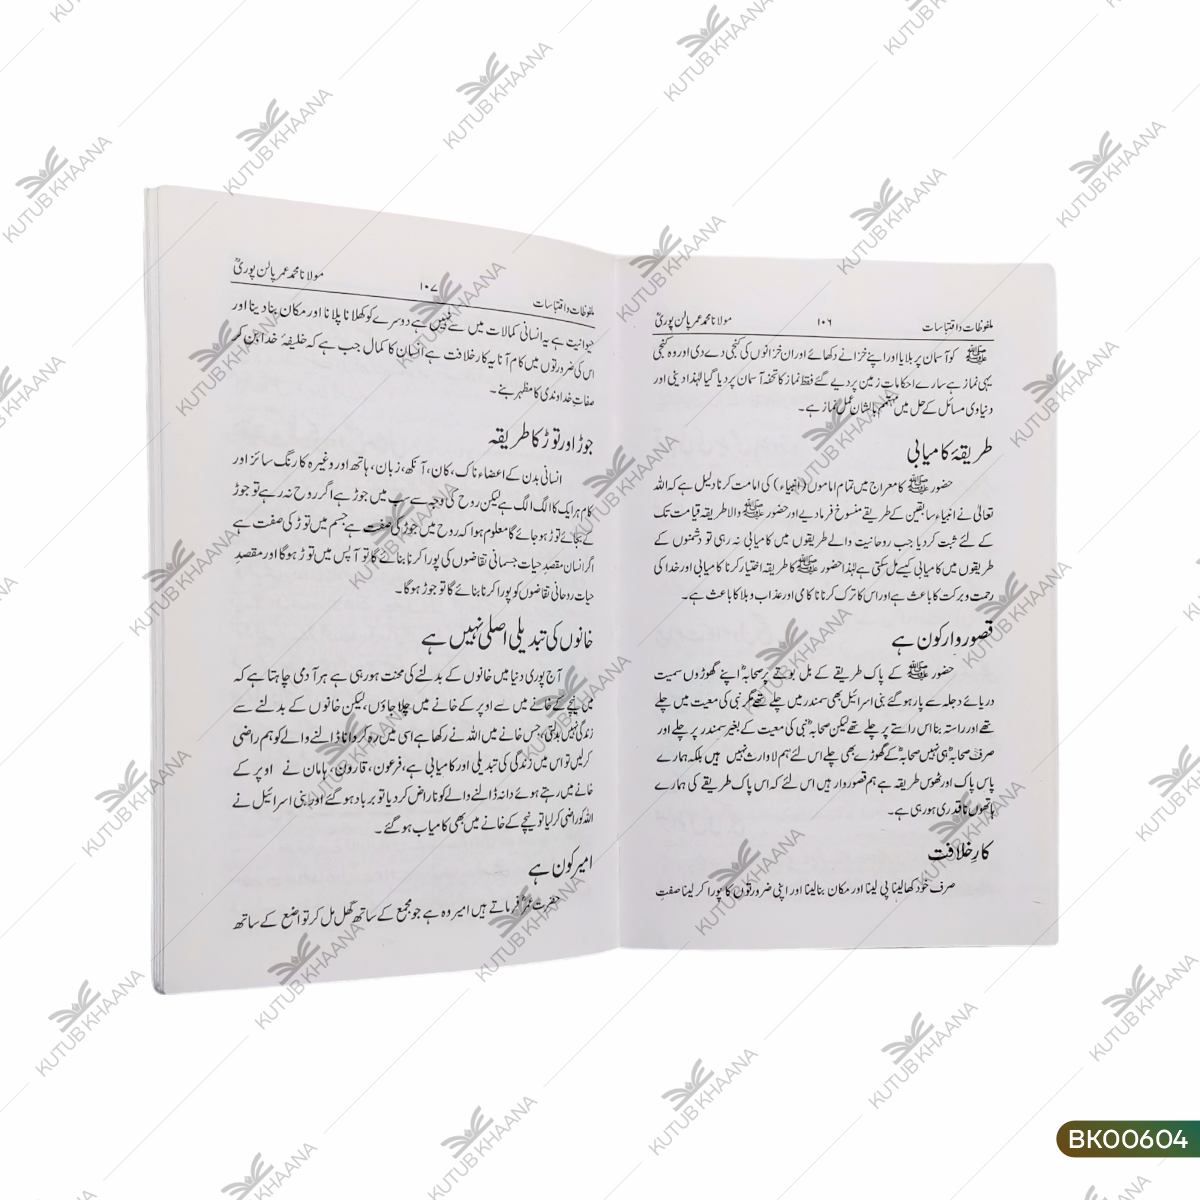 ملفوظات و اقتباسات ۱۰۶ مولانا محمد عمر پالن پوریؒ
ﷺ کو آسمان پر بلایا اور اپنے خزانے دکھائے اور ان خزانوں کی کنجی دے دی اور وہ کنجی
یہی نماز ہے سارے احکامات زمین پر دیے گئے فقط نماز کا تحفہ آسمان پر دیا گیا لہٰذا دینی اور
دنیاوی مسائل کے حل میں مہتم بالشان عمل نماز ہے۔
طریقۂ کامیابی
حضور ﷺ کا معراج میں تمام اماموں (انبیاء) کی امامت کرنا دلیل ہے کہ اللہ
تعالیٰ نے انبیاء سابقین کے طریقے منسوخ فرما دیے اور حضور ﷺ والا طریقہ قیامت تک
کے لئے ثبت کر دیا جب روحانیت والے طریقوں میں کامیابی نہ رہی تو دشمنوں کے
طریقوں میں کامیابی کیسے مل سکتی ہے لہٰذا حضور ﷺ کا طریقہ اختیار کرنا کامیابی اور خدا کی
رحمت و برکت کا باعث ہے اور اس کا ترک کرنا ناکامی اور عذاب و بلا کا باعث ہے۔
قصور وار کون ہے
حضور ﷺ کے پاک طریقے کے بل بوتے پر صحابہؓ اپنے گھوڑوں سمیت
دریائے دجلہ سے پار ہو گئے بنی اسرائیل بھی سمندر میں چلے تھے مگر نبی کی معیت میں چلے
تھے اور راستہ بنا اس راستے پر چلے تھے لیکن صحابہؓ نبی کی معیت کے بغیر سمندر پر چلے اور
صرف صحابہؓ ہی نہیں صحابہؓ کے گھوڑے بھی چلے اس لئے ہم لاوارث نہیں ہیں بلکہ ہمارے
پاس پاک اور ٹھوس طریقہ ہے ہم قصور وار ہیں اس لئے کہ اس پاک طریقے کی ہمارے
ہاتھوں ناقدری ہو رہی ہے۔
کارِ خلافت
صرف خود کھا لینا پی لینا اور مکان بنا لینا اور اپنی ضرورتوں کا پورا کر لینا صفتِ
ملفوظات و اقتباسات ۱۰۷ مولانا محمد عمر پالن پوریؒ
حیوانیت ہے یہ انسانی کمالات میں سے نہیں ہے دوسرے کو کھلانا پلانا اور مکان بنا دینا اور
اس کی ضرورتوں میں کام آنا یہ کار خلافت ہے انسان کا کمال جب ہے کہ خلیفۂ خدا بن کر
صفات خداوندی کا مظہر بنے۔
جوڑ اور توڑ کا طریقہ
انسانی بدن کے اعضاء ناک، کان، آنکھ، زبان، ہاتھ اور وغیرہ کا رنگ سائز اور
کام ہر ایک کا الگ الگ ہے لیکن روح کی وجہ سے سب میں جوڑ ہے اگر روح نہ رہے تو جوڑ
کے بجائے توڑ ہو جائے گا معلوم ہوا کہ روح میں جوڑ کی صفت ہے جسم میں توڑ کی صفت ہے
اگر انسان مقصدِ حیات جسمانی تقاضوں کی پورا کرنا بنائے گا تو آپس میں توڑ ہوگا اور مقصدِ
حیات روحانی تقاضوں کو پورا کرنا بنائے گا تو جوڑ ہوگا۔
خانوں کی تبدیلی اصلی نہیں ہے
آج پوری دنیا میں خانوں کے بدلنے کی محنت ہو رہی ہے ہر آدمی چاہتا ہے کہ
میں نیچے کے خانے میں سے اوپر کے خانے میں چلا جاؤں، لیکن خانوں کے بدلنے سے
زندگی نہیں بدلتی، جس خانے میں اللہ نے رکھا ہے اسی میں رہ کر دانا ڈالنے والے کو ہم راضی
کر لیں تو اس میں زندگی کی تبدیلی اور کامیابی ہے، فرعون، قارون، ہامان نے اوپر کے
خانے میں رہتے ہوئے دانہ ڈالنے والے کو ناراض کر دیا تو برباد ہو گئے اور بنی اسرائیل نے
اللہ کو راضی کر لیا تو نیچے کے خانے میں بھی کامیاب ہو گئے۔
امیر کون ہے
حضرت عمرؓ فرماتے ہیں امیر وہ ہے جو مجمع کے ساتھ گھل مل کر تواضع کے ساتھ
KUTUB KHAANA
BK00604